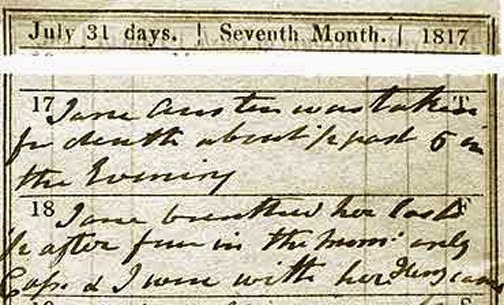 July 31 days. | Seventh Month. | 1817
17 Jane Austen was taken T
for death about ½ past 5 in
the Evening
18 Jane breathed her last F
½ after four in the Morn: only
Cass. & I were with her Henry came